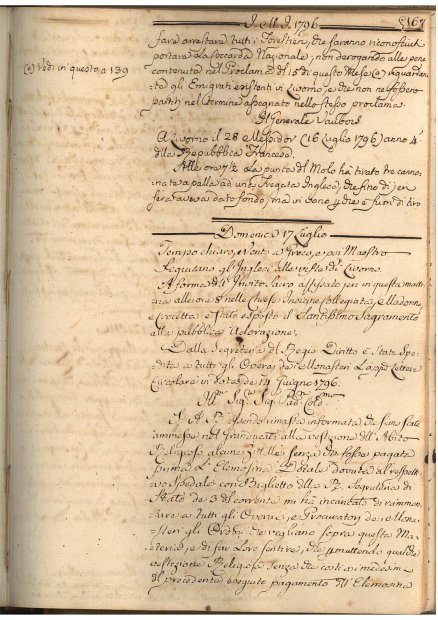 Dell A. 1796
167
farà arrestare tutti i Forestieri, che saranno riconosciuti
portare la Coccarda Nazionale; non derogando alle pene
(a) Vedi in questo a 139
contenute nel Proclama de' 15 di questo Mese (a) riguardan-
te gli Emigrati esistenti in Livorno, e che non ne fossero
partiti nel termine assegnato nello stesso proclama.
Il Generale Vaubois
A Livorno il 28 Messidor (16 Luglio 1796) anno 4
della Repubblica Francese.
Alle ore 7½ La punta del Molo ha tirato tre canno-
nate a palla ad una Fregata Inglese, che fino di jeri
sera aveva dato fondo, ma in vano, e fuori di tiro
Domenica 17 Luglio
Tempo chiaro, Vento a Greco, e poi Maestro
Seguitano gl'Inglesi alla vista di Livorno.
A forma dell'Invito Sacro affissato jeri in questa matti-
na alle ore 8 nelle Chiese Insigne Collegiata, e Madonna,
e Crocetta è stato esposto il Santissimo Sagramento
alla pubblica Adorazione.
Dalla Segreteria del Regio Diritto è stata Spe-
dita a tutti gli Operai de' Monasteri La Lettera
Circolare in data de' 14 Giugno 1796.
S. A. R. rimasta informata, che siano state
ammesse nel Granducato alla vestizione dell'Abito
Religioso alcune senza che fosse pagata
prima L'Elemosina Dotale dovuta al respetti-
vo Spedale con Biglietto della R. Segreteria di
Stato de' 3 del corrente mi ha incaricato di rammen-
tare a tutti gli Operai, e Procuratori de' Mona-
steri gli Ordini che vegliano sopra questa Ma-
teria, e di far Loro sentire, che ammettendo qualche
vestizione Religiosa senza che costi ai medesimi
il precedente seguito pagamento dell'Elemosina